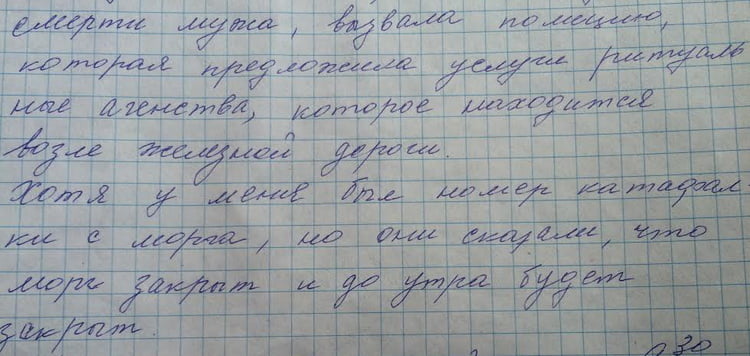 смерти мужа, вызвала помощию,
которая предложила услуги ритуаль
ные агенства, которое находится
возле железной дороги.
Хотя у меня был номер катафал-
ки с морга, но они сказали, что
морг закрыт и до утра будет
закрыт.
30